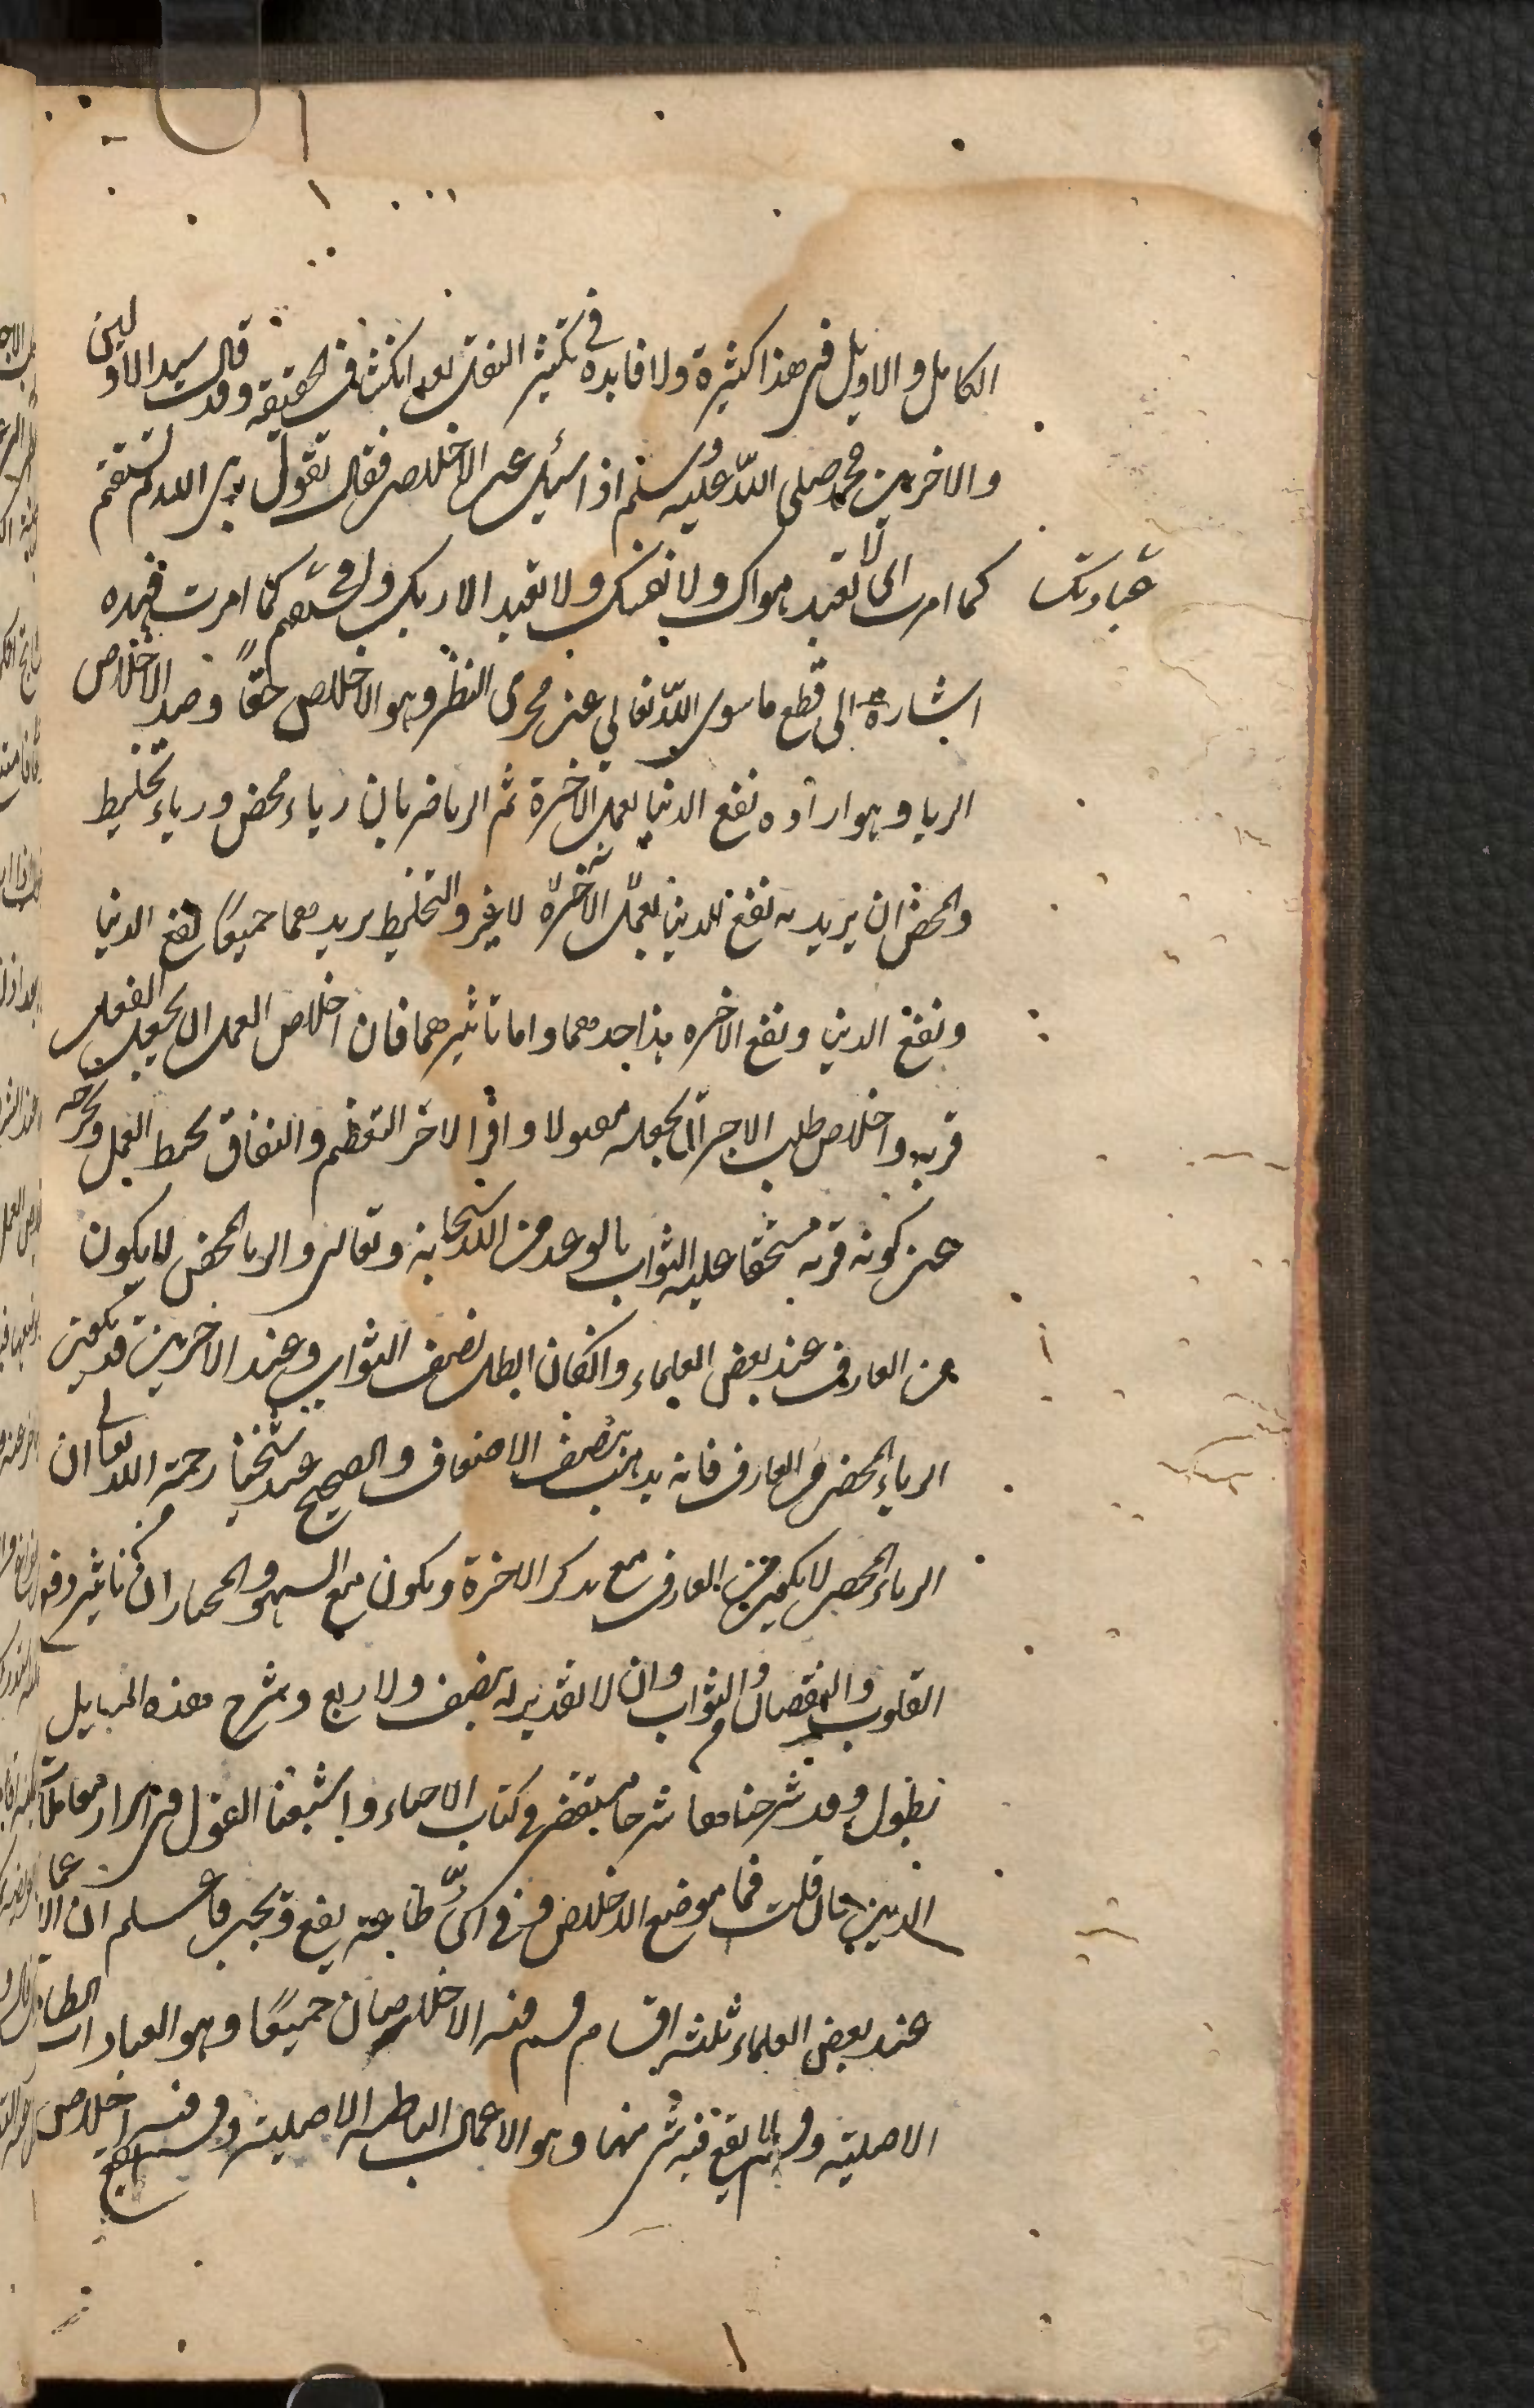 الكامل والاويل في هذا كثيرة ولا فايده في تكثير النقل بعد انكشاف الحقيقه وقد قال سيد الاولين
والاخرين محمد صلى الله عليه وسلم اذ سئل عن الاخلاص فقال تقول ربي الله ثم تستقم
كما امرت اى لا تعبد هواك ولا نفسك ولا تعبد الا ربك وتستقم كما امرت فهذه
عبادتك
اشارة الى قطع ما سوى الله تعالى عن مجرى النظر وهو الاخلاص حقاً وضد الاخلاص
الريا وهو اراده نفع الدنيا بعمل الاخرة ثم الريا ضربان رياء محض ورياء تخليط
والمحض ان يريد به نفع الدنيا بعمل الآخرة لا غير والتخليط يريد هما جميعًا نفع الدنيا
ونفع الاخره هذا حدهما واما تاثيرهما فان اخلاص العمل ان يجعل الفعل
قربه واخلاص طلب الاجر ان يجعله مقبولا وافر الاجر التعظيم والنفاق يحبط العمل ويخرجه
عن كونه قربه مستحقا عليه الثواب بالوعد من الله سبحانه وتعالى والريا المحض لا يكون
من العارف عند بعض العلماء وان كان ابطل نصف الثواب وعند الاخرين قد يكون
الرياء المحض من العارف فانه يذهب بنصف الاضعاف والصحيح عند شيخنا رحمة الله تعالى ان
الرياء المحض لا يكون من العارف مع تذكر الاخرة ويكون مع السهو والمختار ان تاثيره رفع
القبول والنقصان في الثواب وان لا تقدير له بنصف ولا ربع وشرح هذه المسايل
يطول وقد شرحناها شرحا في كتاب الاحياء واشبعنا القول في اسرار معاملات
الدين فان قلت فما موضع الاخلاص وفي اىّ طاعة يقع ويجب فاعلم ان الاعمال
عند بعض العلماء ثلثه اقسام قسم فيه الاخلاصان جميعًا وهو العبادات الظاهرة
الاصلية وقسم لا يقع فيه شى منهما وهو الاعمال الباطنه الاصلية وقسم يقع فيه اخلاص